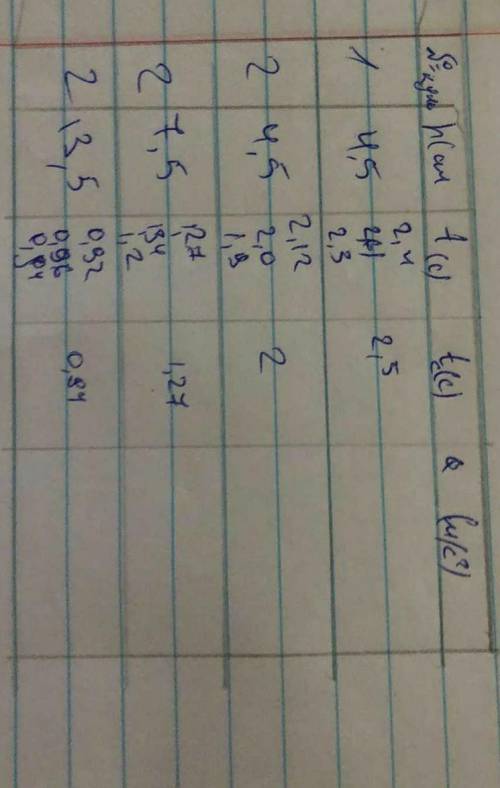 № h(см t (c) tc(c) a (м/с²)
1 4,5 2,4 2,3 2,5
2 4,5 2,12 2,0 1,9 2
2 7,5 1,27 1,34 1,2 1,27
2 13,5 0,92 0,96 0,94